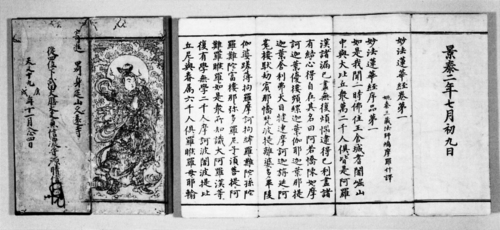 景泰二年七月初九日
妙法蓮華經卷第一
姚秦三藏法師鳩摩羅什譯
妙法蓮華經序品第一
如是我聞一時佛住王舍城耆闍崛山
中與大比丘眾萬二千人俱皆是阿羅
漢諸漏已盡無復煩惱逮得己利盡諸
有結心得自在其名曰阿若憍陳如摩
訶迦葉優樓頻螺迦葉伽耶迦葉那提
迦葉舍利弗大目揵連摩訶迦旃延阿
㝹樓馱劫賓那憍梵波提離婆多畢陵
伽婆蹉薄拘羅摩訶拘絺羅難陀孫陀
羅難陀富樓那彌多羅尼子須菩提阿
難羅睺羅如是眾所知識大阿羅漢等
復有學無學二千人摩訶波闍波提比
丘尼與眷屬六千人俱羅睺羅母耶輸